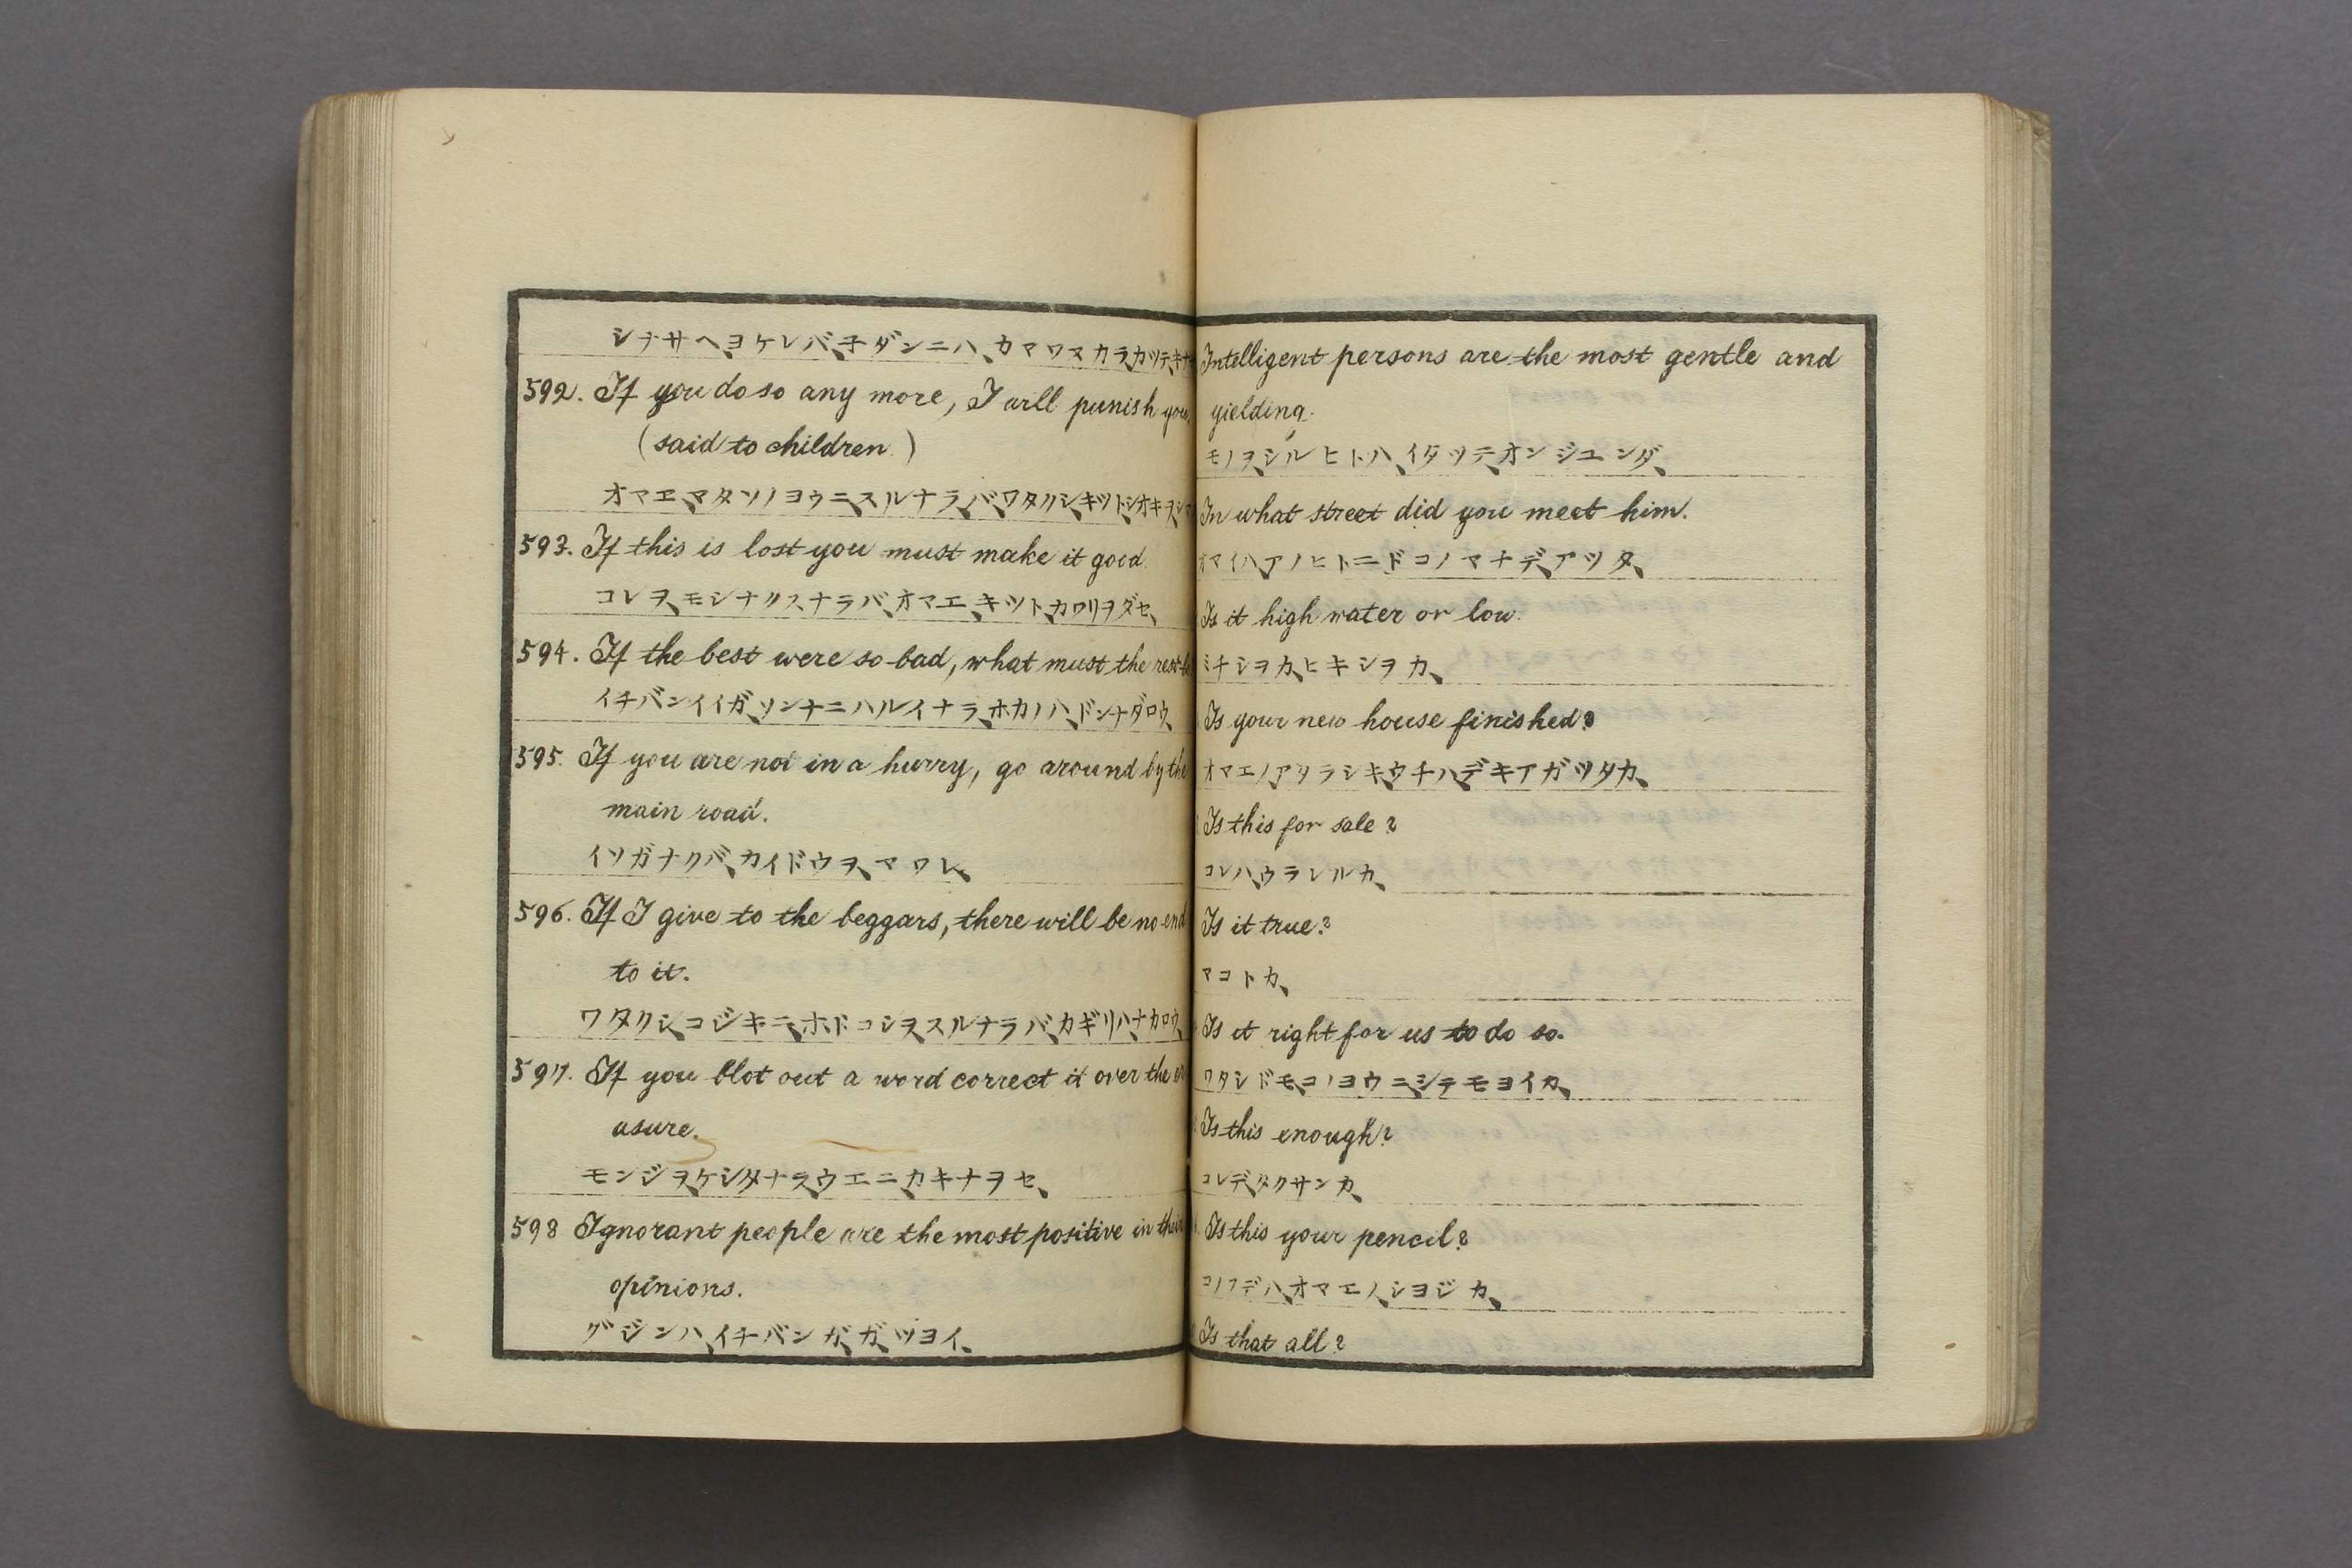 シナサヘ、ヨケレバ、子ダンニハ、カマワヌカラ、カツテ、キナ
592. If you do so any more, I will punish you.
(said to children.)
オマエ、マタソノヨウニ、スルナラ、バ、ワタクシ、キツト、シオキヲ、シ
593. If this is lost you must make it good.
コレヲ、モシナクスナラバ、オマエ、キツト、カワリヲダセ、
594. If the best were so bad, what must the rest be
イチバンイイガ、ソンナニハルイナラ、ホカノハ、ドンナダロウ、
595. If you are not in a hurry, go around by the
main road.
イソガナクバ、カイドウヲ、マワレ、
596. If I give to the beggars, there will be no end
to it.
ワタクシ、コジキニ、ホドコシヲ、スルナラバ、カギリハ、ナカロウ、
597. If you blot out a word correct it over the er
asure.
モンジヲ、ケシタ、ナラ、ウエニ、カキナヲセ、
598 Ignorant people are the most positive in their
opinions.
グジンハ、イチバンガ、ガ、ツヨイ、
Intelligent persons are the most gentle and
yielding.
モノヲ、シルヒトハ、イタツテ、オンジユンダ、
In what street did you meet him.
オマイハ、アノヒトニドコノマチデ、アツタ、
Is it high water or low.
ミチシヲカ、ヒキシヲカ、
Is your new house finished?
オマエノ、アタラシキ、ウチハ、デキアガツタカ、
Is this for sale?
コレハ、ウラレルカ、
Is it true?
マコトカ、
Is it right for us to do so.
ワタシドモ、コノヨウニ、シテモヨイカ、
Is this enough?
コレデ、タクサンカ、
Is this your pencil?
コノフデハ、オマエノ、シヨジカ、
Is that all?